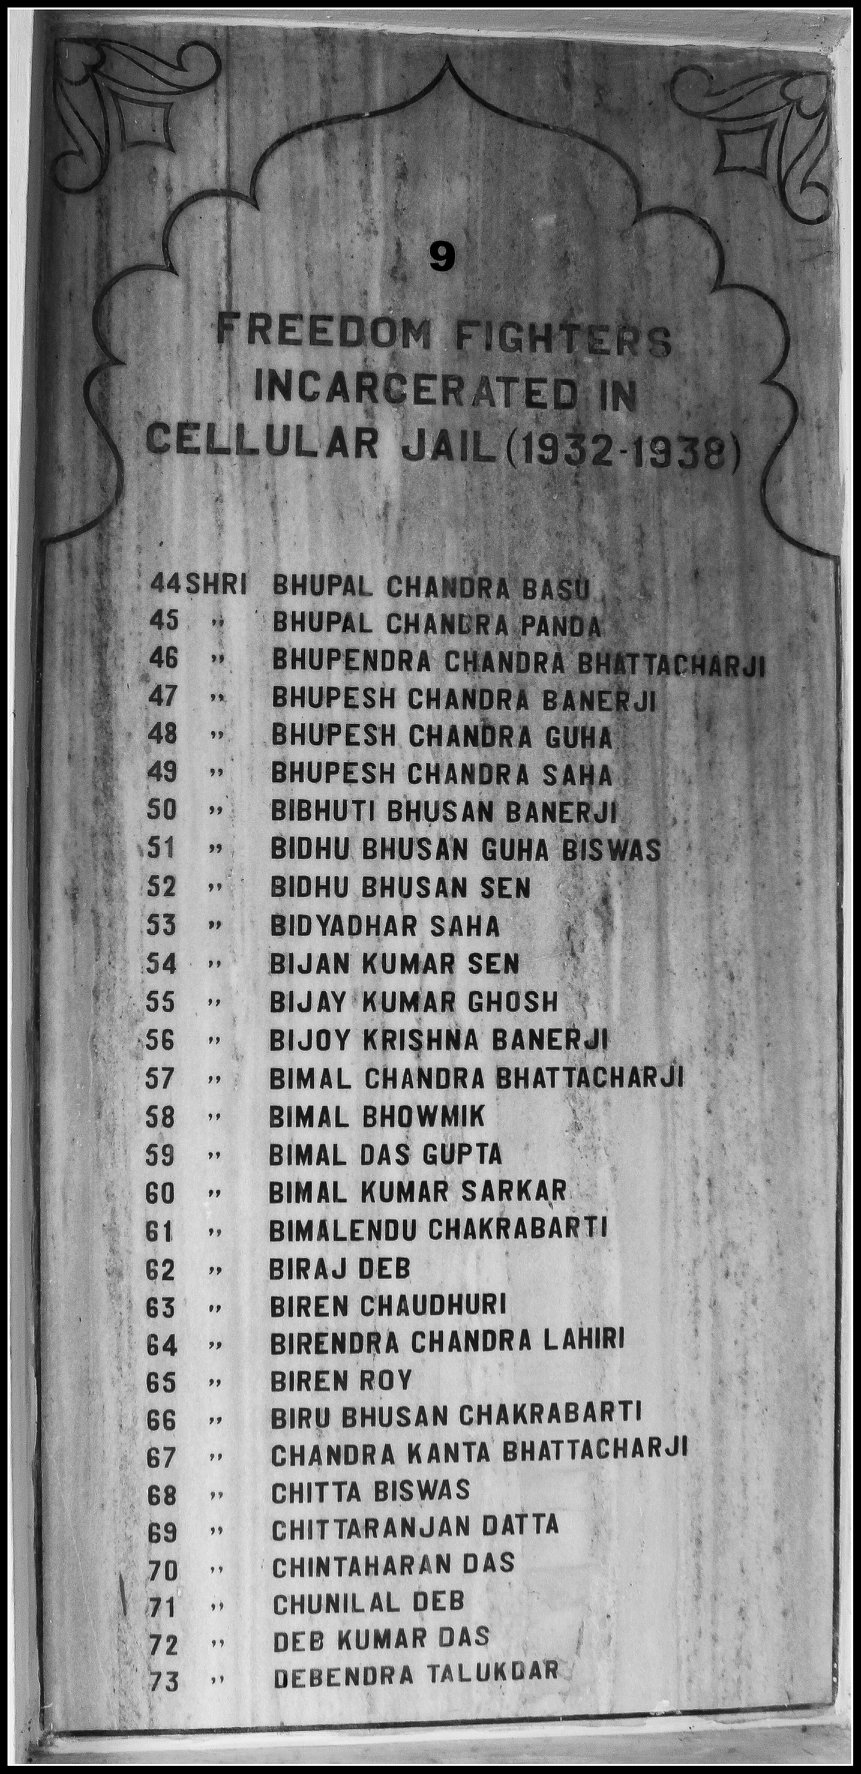 9
FREEDOM FIGHTERS
INCARCERATED IN
CELLULAR JAIL (1932-1938)
44 SHRI BHUPAL CHANDRA BASU
45 " BHUPAL CHANDRA PANDA
46 " BHUPENDRA CHANDRA BHATTACHARJI
47 " BHUPESH CHANDRA BANERJI
48 " BHUPESH CHANDRA GUHA
49 " BHUPESH CHANDRA SAHA
50 " BIBHUTI BHUSAN BANERJI
51 " BIDHU BHUSAN GUHA BISWAS
52 " BIDHU BHUSAN SEN
53 " BIDYADHAR SAHA
54 " BIJAN KUMAR SEN
55 " BIJAY KUMAR GHOSH
56 " BIJOY KRISHNA BANERJI
57 " BIMAL CHANDRA BHATTACHARJI
58 " BIMAL BHOWMIK
59 " BIMAL DAS GUPTA
60 " BIMAL KUMAR SARKAR
61 " BIMALENDU CHAKRABARTI
62 " BIRAJ DEB
63 " BIREN CHAUDHURI
64 " BIRENDRA CHANDRA LAHIRI
65 " BIREN ROY
66 " BIRU BHUSAN CHAKRABARTI
67 " CHANDRA KANTA BHATTACHARJI
68 " CHITTA BISWAS
69 " CHITTARANJAN DATTA
70 " CHINTAHARAN DAS
71 " CHUNILAL DEB
72 " DEB KUMAR DAS
73 " DEBENDRA TALUKDAR